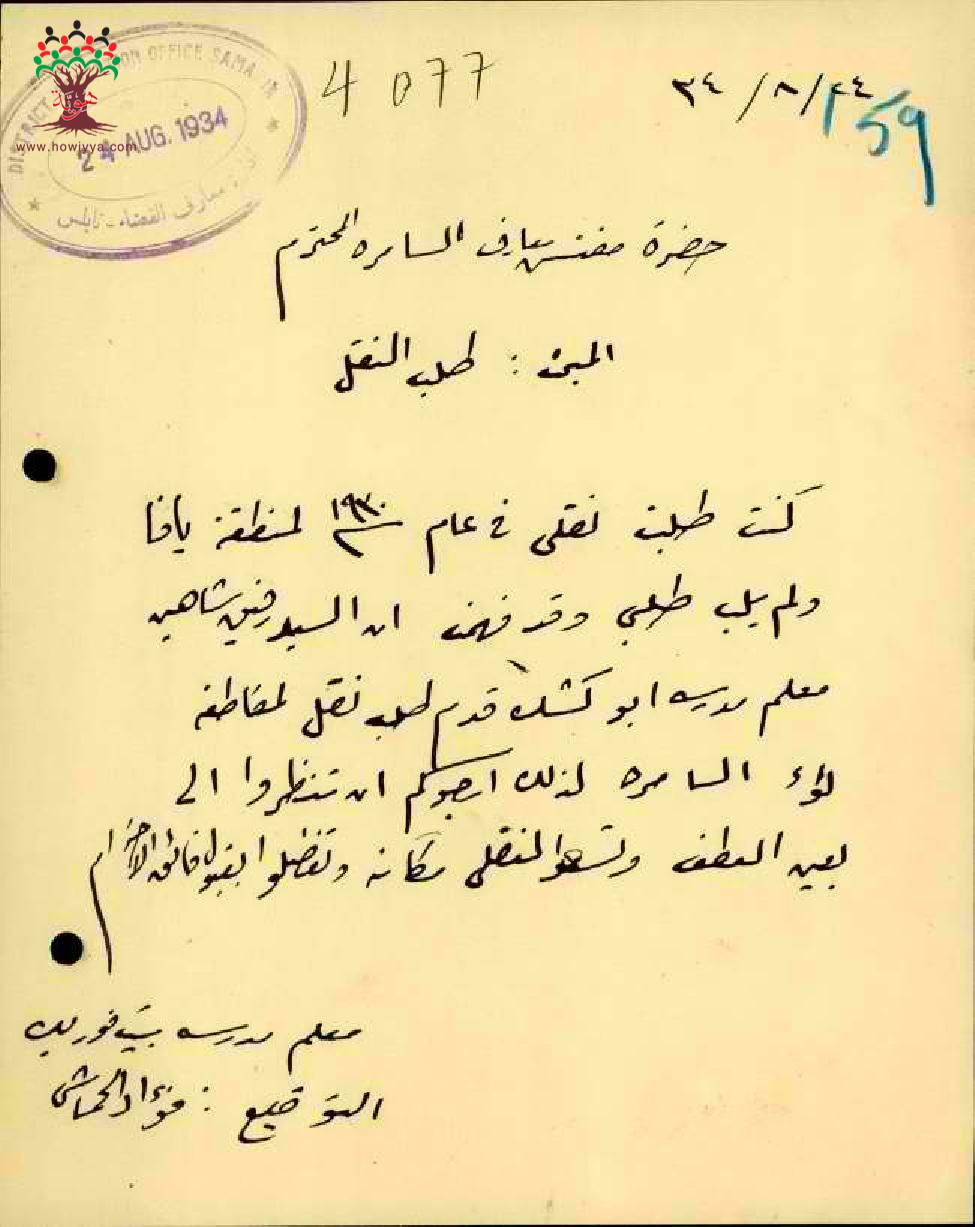 DISTRICT EDUCATION OFFICE SAMARIA
24 AUG. 1934
معارف القضاء - نابلس
www.howiyya.com
هوية
4077
٢٤/٨/٣٤
159
حضرة مفتش معارف السامره المحترم
: طلب النقل
كنت طلبت نقلي في عام ١٩٣٠ لمنطقة يافا
ولم يلب طلبي وقد فهمت ان السيد رفيق شاهين
معلم مدرسه ابو كشك قدم طلب نقل لمقاطعة
لواء السامره لذلك ارجوكم ان تنظروا الي
بعين العطف وتسعوا لنقلي مكانه وتفضلوا بقبول فائق الاحترام
معلم مدرسه بيت فوريك
التوقيع : فؤاد الخماش